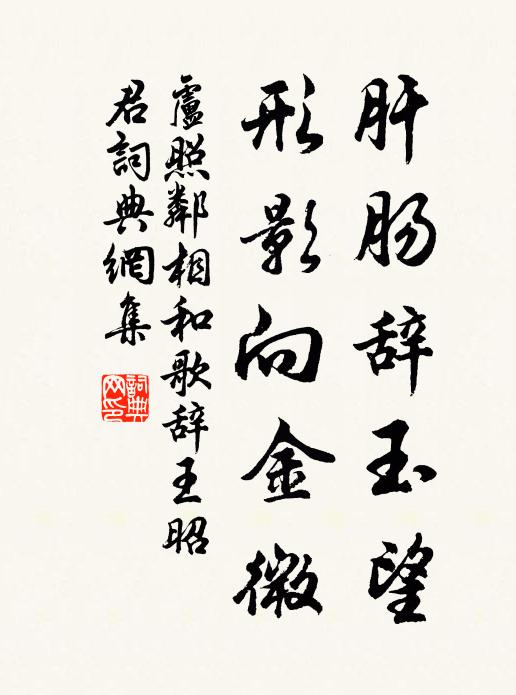 肝肠辞玉望
形影向金微
盧照鄰相和歌辞王昭
君詞典網集
詞典网印